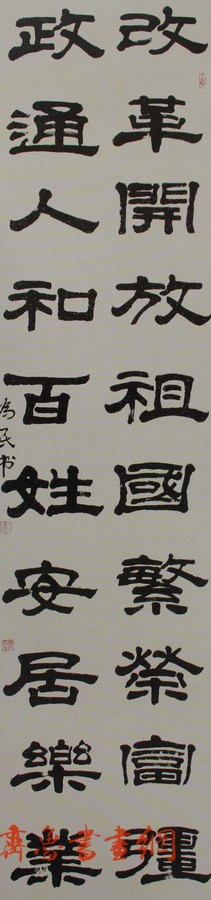 改革開放祖國繁榮富疆
政通人和百姓安居樂業
為民书
齊魯書畫網